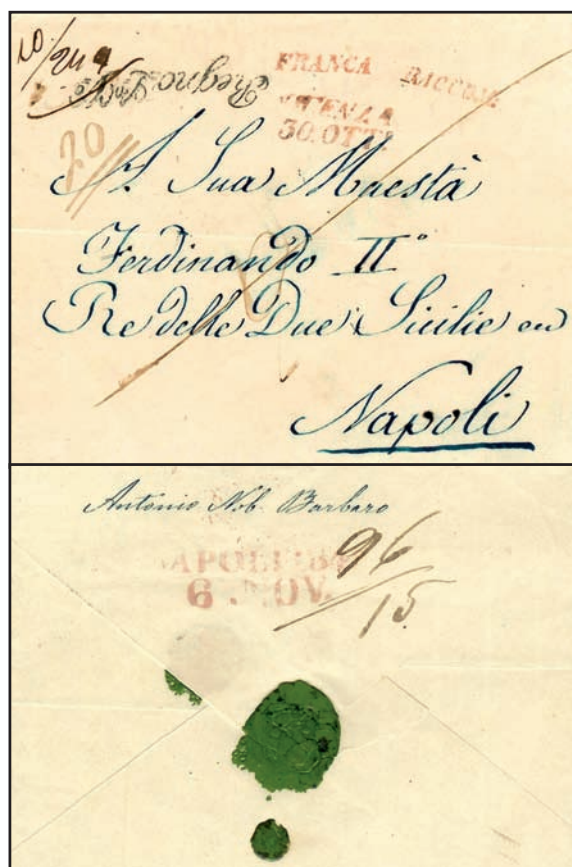 10/244
Regno L.º V.º
FRANCA RACCOM
VICENZA
30. OTT.
20
A Sua Maestà
Ferdinando IIº
Re delle Due Sicilie in
Napoli
Antonio Nob. Barbaro
NAPOLI 184
6 NOV.
96/15